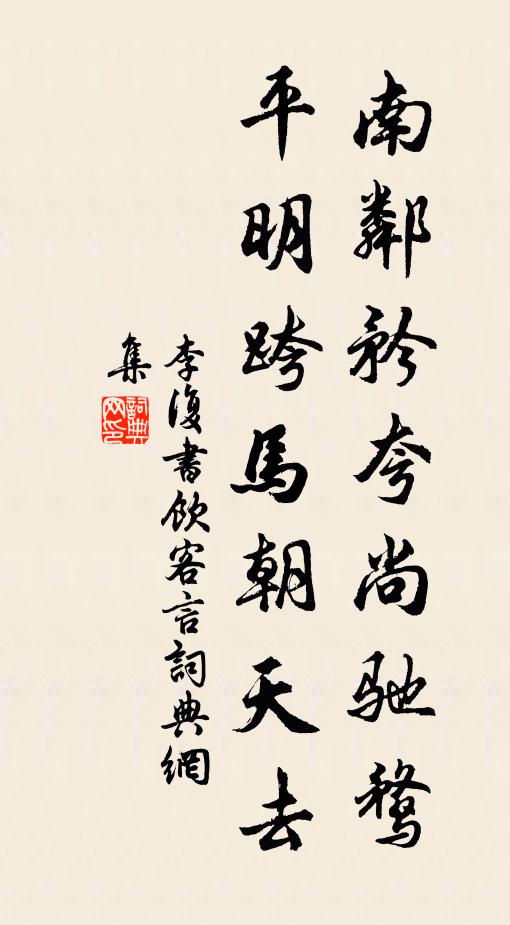 南鄰矜夸尚馳騖
平明跨馬朝天去
李復書飲客言詞典網
集
詞典
网印